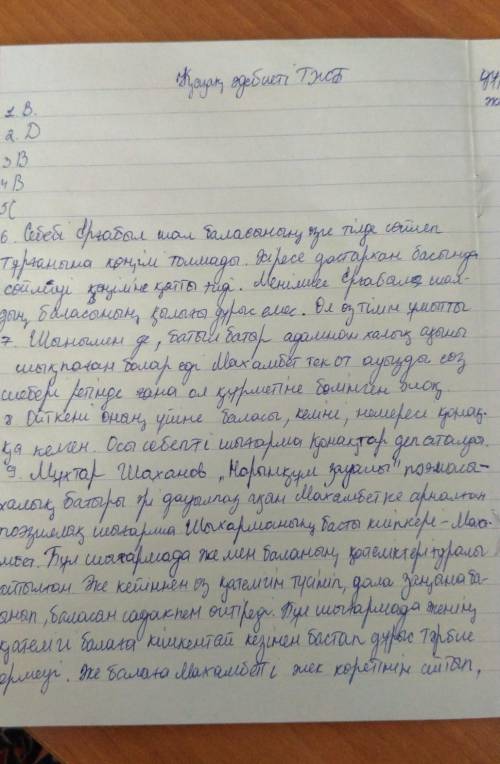 Қазақ әдебиеті ТЖБ
1. В.
2. D
3 В
4 В
5 С
6. Себебі Ерғабыл шал баласының өзге тілде сөйлеп
тұрғанына көңілі толмады. Әсіресе дастархан басында
сөйлеуі көңіліне қатты тиді. Меніңше Ерғабыл шал-
дың баласының қылығы дұрыс емес. Ол өз тілін ұмытты
7. Шынымен де, батыл батыр адамнан халық ақыны
шықпаған болар еді Махамбет тек от ауызды сөз
шебері ретінде ғана ол құрметіне бөленген жоқ.
8 Өйткені оның үйіне баласы, келіні, немересі қонақ-
қа келген. Осы себепті шығарма қонақтар деп аталды.
9. Мұхтар Шаханов "Нарынқұм зауалы" поэмасы-
халық батыры әрі дауылпаз ақын Махамбетке арналған
поэзиялық шығарма Шығарманың басты кейіпкері - Маха-
мбет. Бұл шығармада әже мен баланың қателіктері туралы
айтылған Әже кейіннен өз қателігін түсініп, дала заңына ба-
ғынып, баласын садақпен өлтіреді. Бұл шығармада әженің
қателігі балаға кішкентай кезінен бастап дұрыс тәрбие
бермеуі. Әже балаға Махамбетті жек көретінін айтып,